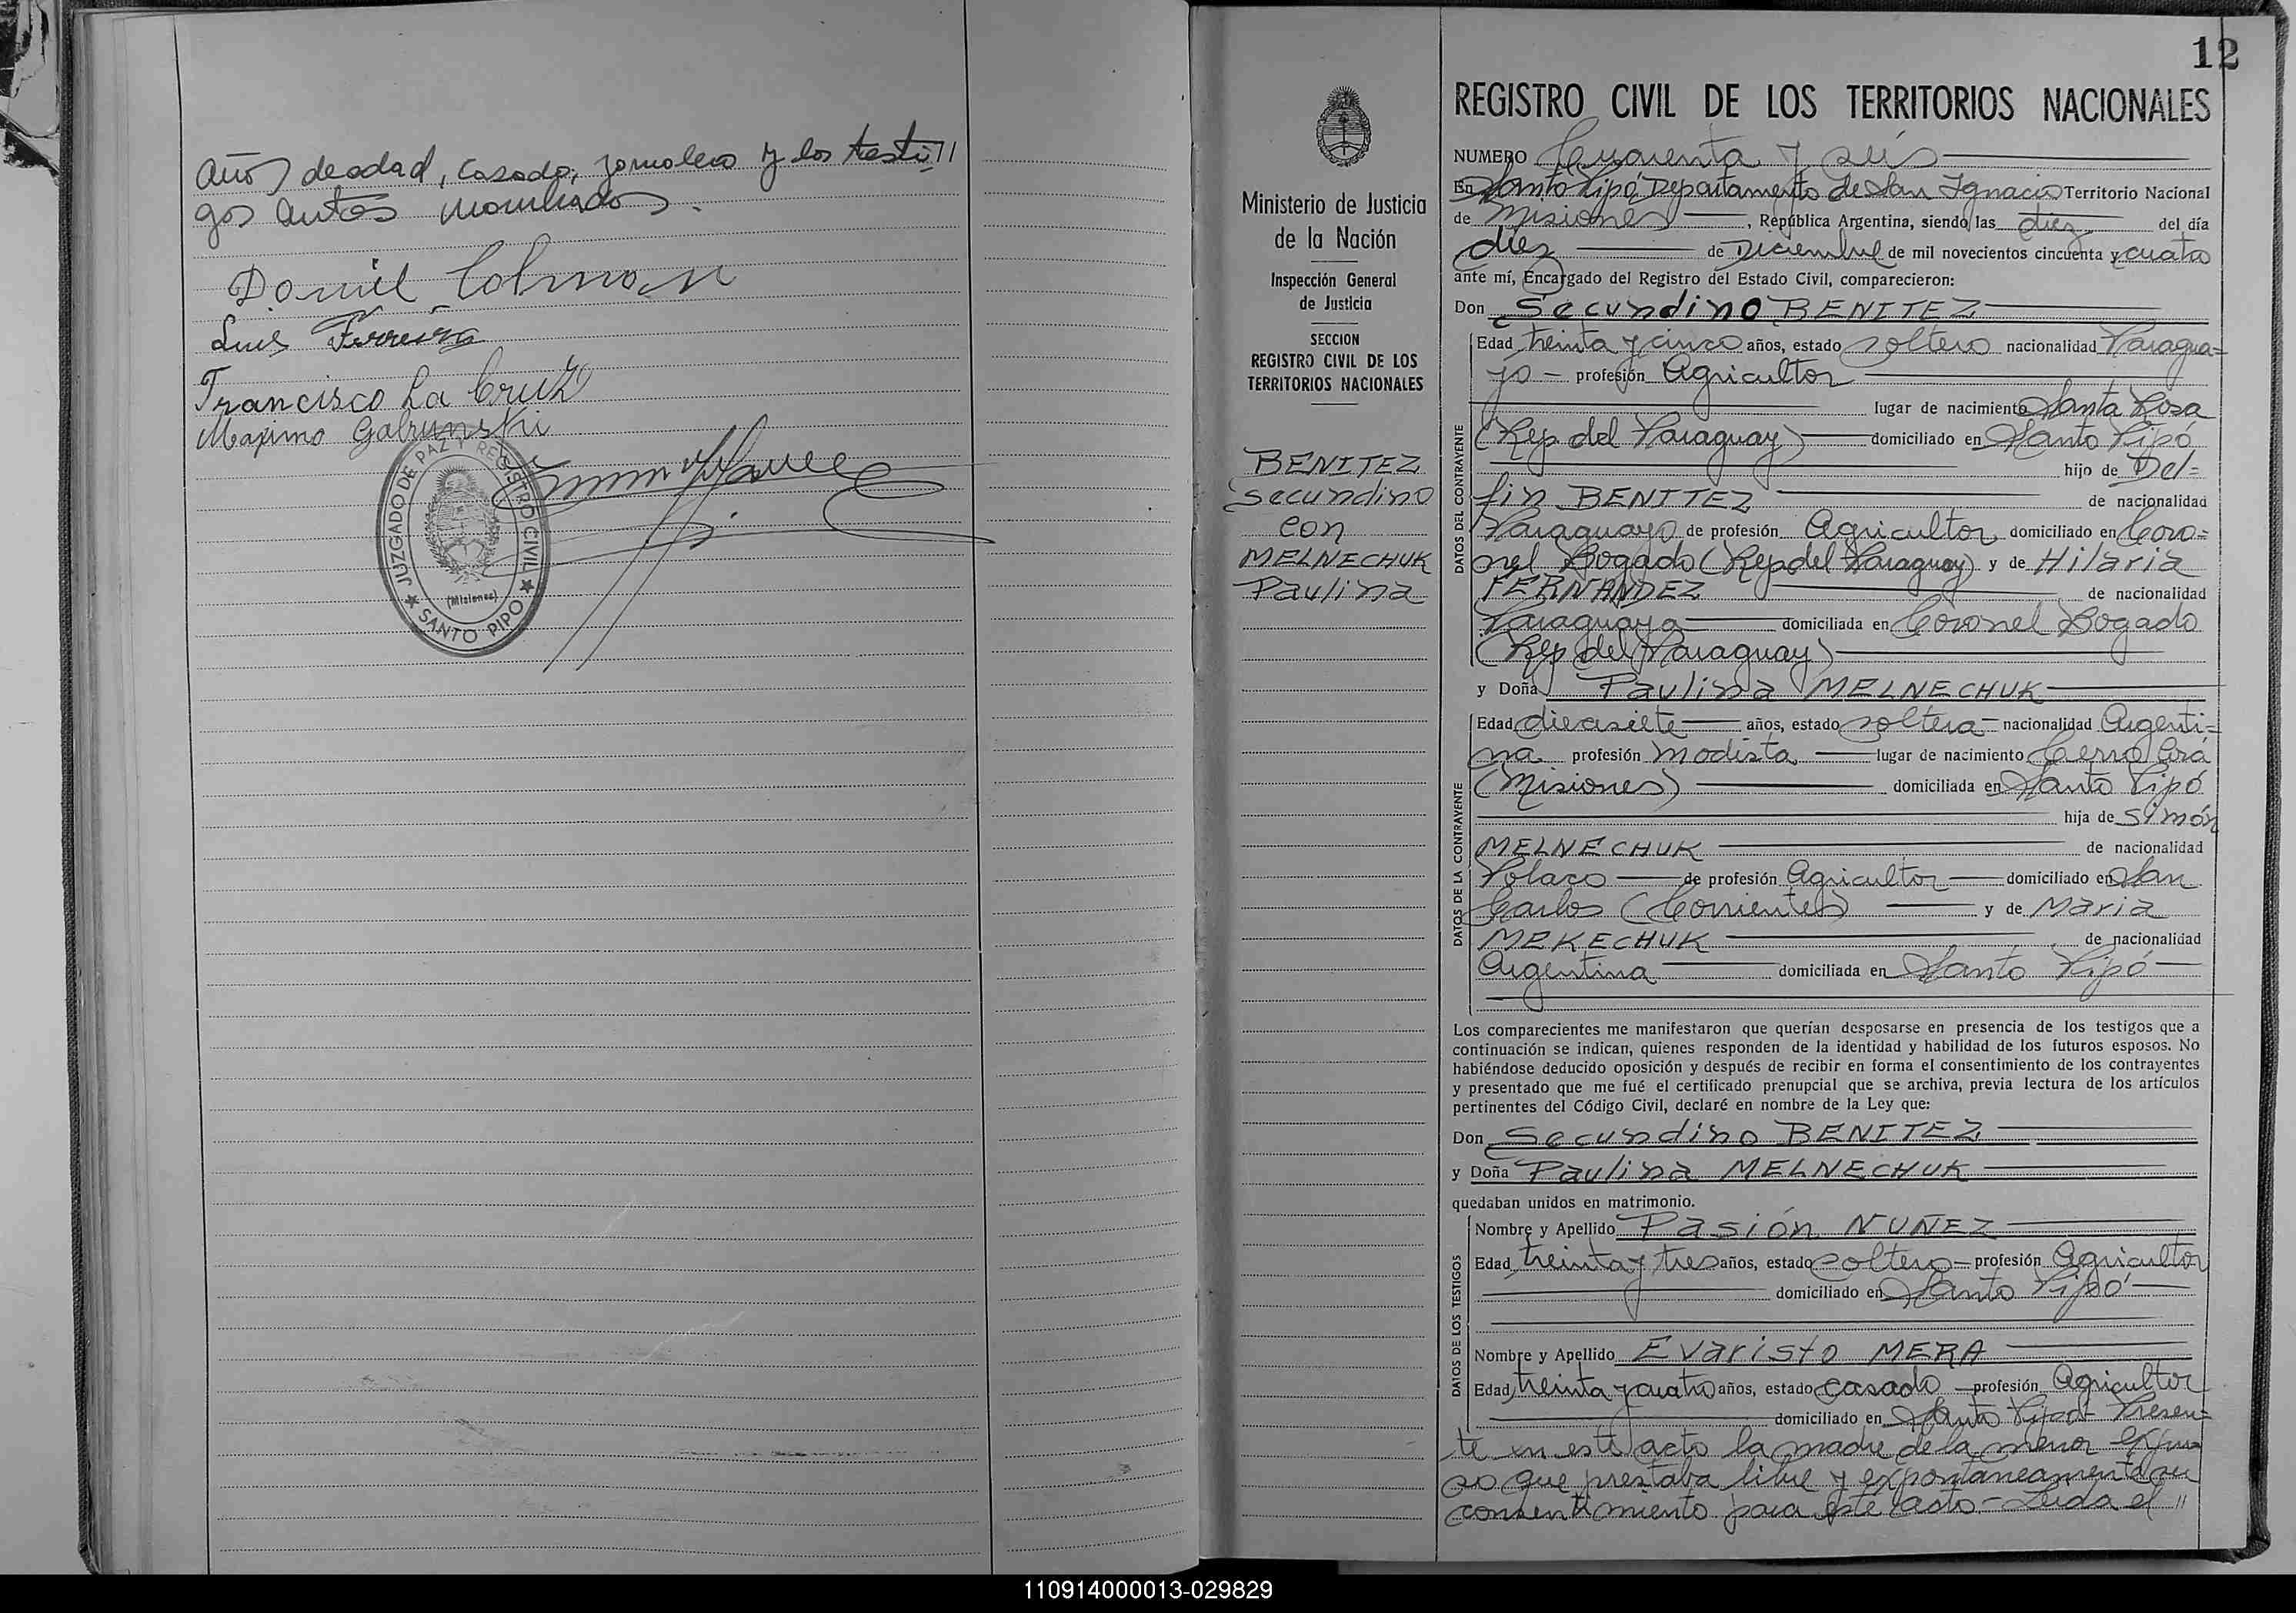 años de edad, casado, jornalero y los testi//
gos antes nombrados.
Daniel Colman
Luis Ferreira
Francisco La Cruz
Maximo Gabrunski
JUZGADO DE PAZ Y REGISTRO CIVIL
(Misiones)
★ SANTO PIPO ★
12
REGISTRO CIVIL DE LOS TERRITORIOS NACIONALES
Ministerio de Justicia
de la Nación
Inspección General
de Justicia
SECCION
REGISTRO CIVIL DE LOS
TERRITORIOS NACIONALES
BENITEZ
Secundino
con
MELNECHUK
Paulina
NUMERO Cuarenta y seis
En Santo Pipó Departamento de San Ignacio Territorio Nacional
de Misiones, República Argentina, siendo las diez del día
diez de Diciembre de mil novecientos cincuenta y cuatro
ante mí, Encargado del Registro del Estado Civil, comparecieron:
Don Secundino BENITEZ
DATOS DEL CONTRAYENTE
Edad treinta y cinco años, estado soltero nacionalidad Paragua=
yo - profesión Agricultor
lugar de nacimiento Santa Rosa
(Rep del Paraguay) domiciliado en Santo Pipó
hijo de Del=
fin BENITEZ de nacionalidad
Paraguayo de profesión Agricultor domiciliado en Coro=
nel Bogado (Rep del Paraguay) y de Hilaria
FERNANDEZ de nacionalidad
Paraguaya domiciliada en Coronel Bogado
(Rep del Paraguay)
y Doña Paulina MELNECHUK
DATOS DE LA CONTRAYENTE
Edad diecisiete años, estado soltera - nacionalidad Argenti=
na profesión Modista lugar de nacimiento Cerro Corá
(Misiones) domiciliada en Santo Pipó
hija de Simón
MELNECHUK de nacionalidad
Polaco de profesión Agricultor domiciliado en San
Carlos (Corrientes) y de Maria
MEKECHUK de nacionalidad
Argentina domiciliada en Santo Pipó
Los comparecientes me manifestaron que querían desposarse en presencia de los testigos que a
continuación se indican, quienes responden de la identidad y habilidad de los futuros esposos. No
habiéndose deducido oposición y después de recibir en forma el consentimiento de los contrayentes
y presentado que me fué el certificado prenupcial que se archiva, previa lectura de los artículos
pertinentes del Código Civil, declaré en nombre de la Ley que:
Don Secundino BENITEZ
y Doña Paulina MELNECHUK
quedaban unidos en matrimonio.
DATOS DE LOS TESTIGOS
Nombre y Apellido Pasión NUÑEZ
Edad treinta y tres años, estado soltero - profesión Agricultor
domiciliado en Santo Pipó
Nombre y Apellido Evaristo MERA
Edad treinta y cuatro años, estado casado profesión Agricultor
domiciliado en Santo Pipó - Presen=
te en este acto la madre de la menor expu
so que prestaba libre y expontaneamente su
consentimiento para este acto - Leida el //
110914000013-029829